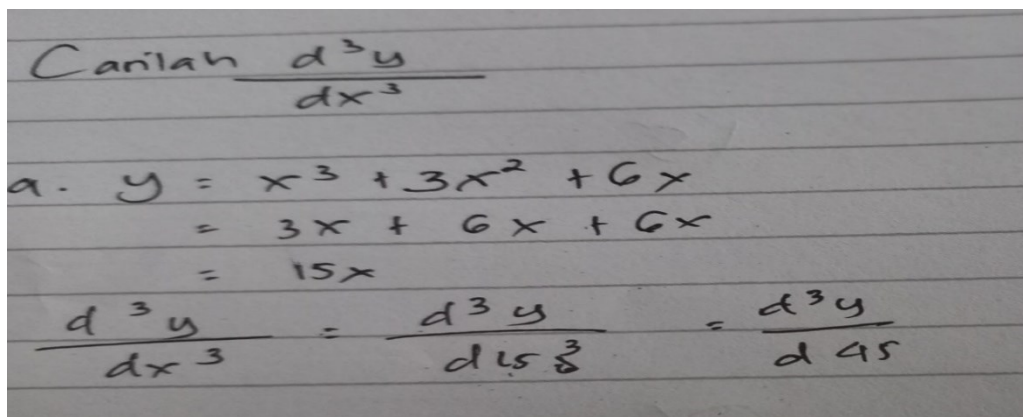 Carilah d³y/dx³
a. y = x³ + 3x² + 6x
= 3x + 6x + 6x
= 15x
d³y/dx³ = d³y/d15³ = d³y/d45